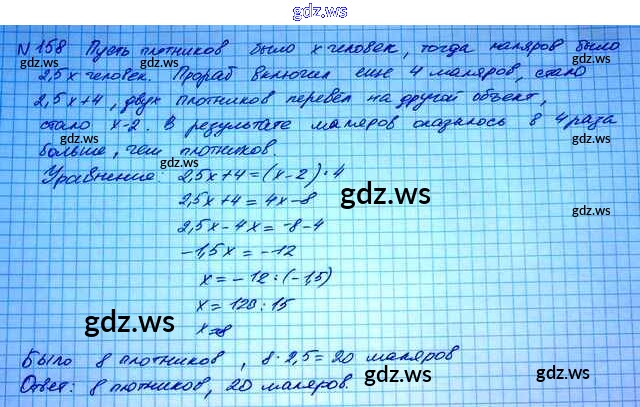 gdz.ws
N 158 Пусть плотников было x человек, тогда маляров было
2,5x человек. Прораб включил еще 4 маляров, стало
2,5x+4, двух плотников перевёл на другой объект,
стало x-2. В результате маляров оказалось в 4 раза
больше, чем плотников.
Уравнение: 2,5x+4=(x-2)·4
2,5x+4=4x-8
2,5x-4x=-8-4
-1,5x=-12
x=-12:(-1,5)
x=120:15
x=8
Было 8 плотников, 8·2,5=20 маляров
Ответ: 8 плотников, 20 маляров.
gdz.ws
gdz.ws
gdz.ws
gdz.ws
gdz.ws
gdz.ws
gdz.ws
gdz.ws
gdz.ws
gdz.ws
gdz.ws
gdz.ws
gdz.ws